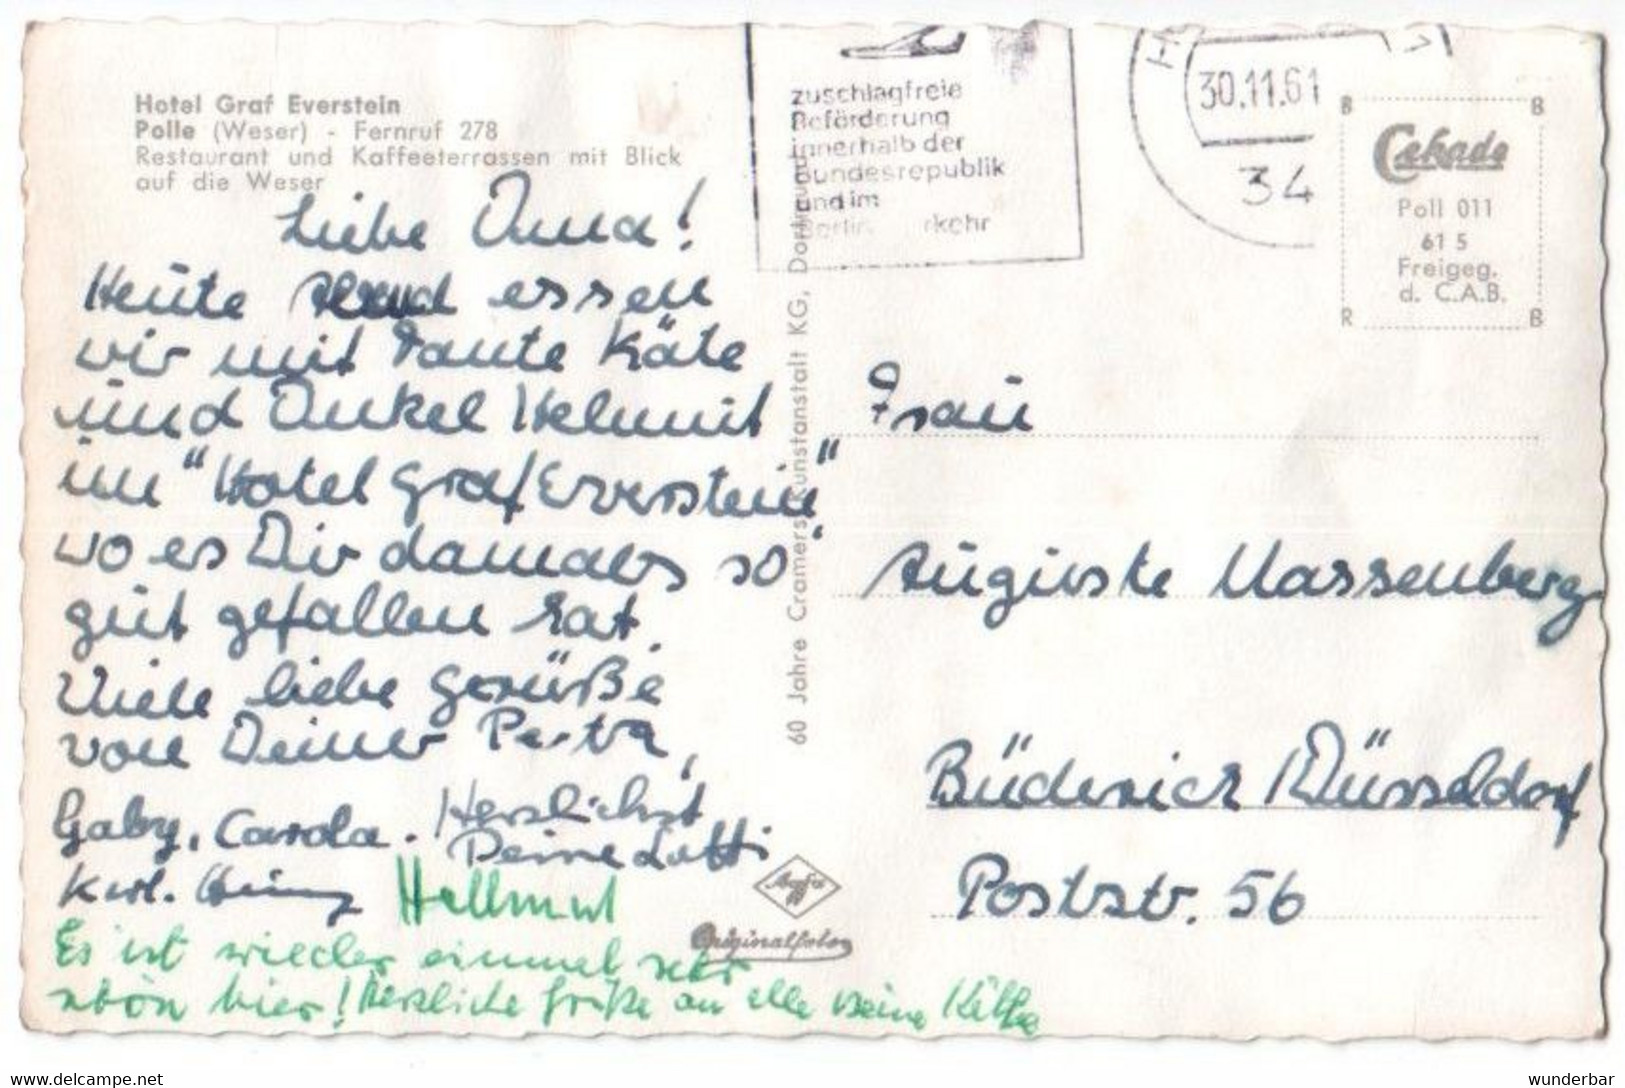 Hotel Graf Everstein
Polle (Weser) - Fernruf 278
Restaurant und Kaffeeterrassen mit Blick
auf die Weser
Liebe Oma!
Heute essen
wir mit Tante Käte
und Onkel Helmut
im "Hotel Graf Everstein"
wo es Dir damals so
gut gefallen hat.
Viele liebe Grüße
von Deiner Petra,
Gaby, Carola. Herzlichst
Deine Lotti
Karl-Heinz
Hellmut
Es ist wieder einmal sehr
schön hier! Herzliche Grüße an alle Deine Käthe
60 Jahre Cramers Kunstanstalt KG, Dortmund
Agfa
Originalfoto
zuschlagfreie
Beförderung
innerhalb der
Bundesrepublik
und im
30.11.61
34
Cekade
Poll 011
61 5
Freigeg.
d. C.A.B.
Frau
Auguste Massenberg
Büderich / Düsseldorf
Poststr. 56
www.delcampe.net
wunderbar